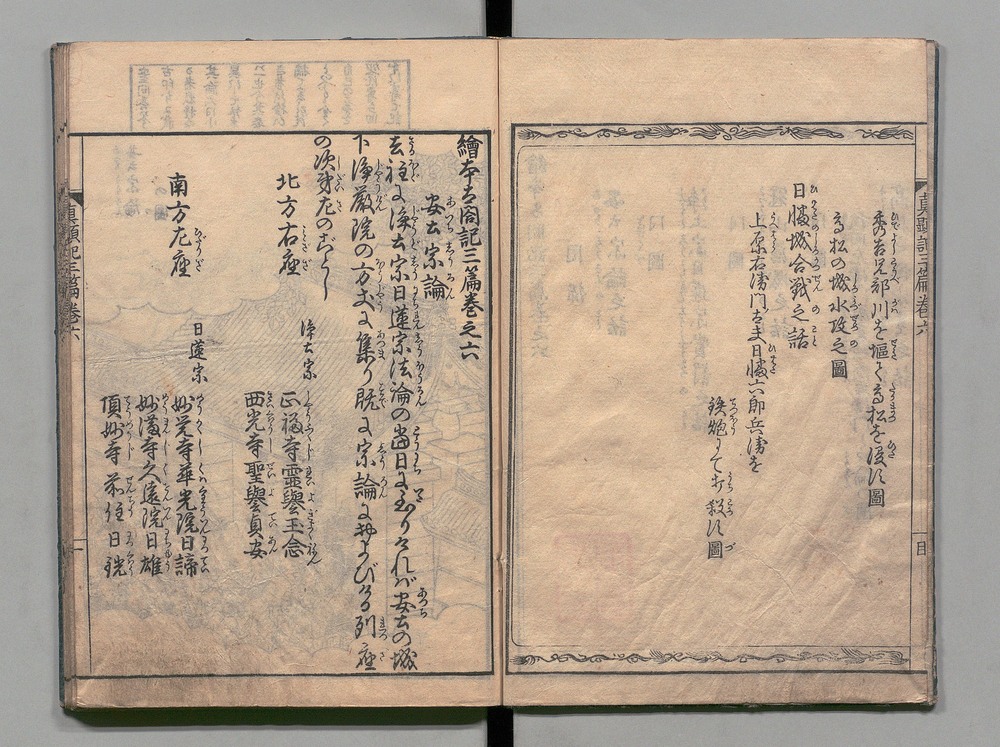 秀吉兄部川を堰て高松を浸す圖
高松の城水攻之圖
日幡城合戦之話
上原右衛門太夫日幡六郎兵衛を
鉄炮にて打殺す圖
真顕記三篇巻六
目
繪本太閤記三篇巻之六
安土宗論
去程に浄土宗日蓮宗法論の當日に至りければ安土の城
下浄厳院の方丈に集り既に宗論に及びける列座
の次第左のごとし
北方右座
浄土宗
正福寺靈譽玉念
西光寺聖譽貞安
南方左座
日蓮宗
妙栄寺華光院日諦
妙満寺久遠院日雄
頂妙寺前住日珖
真顕記三篇巻六
一